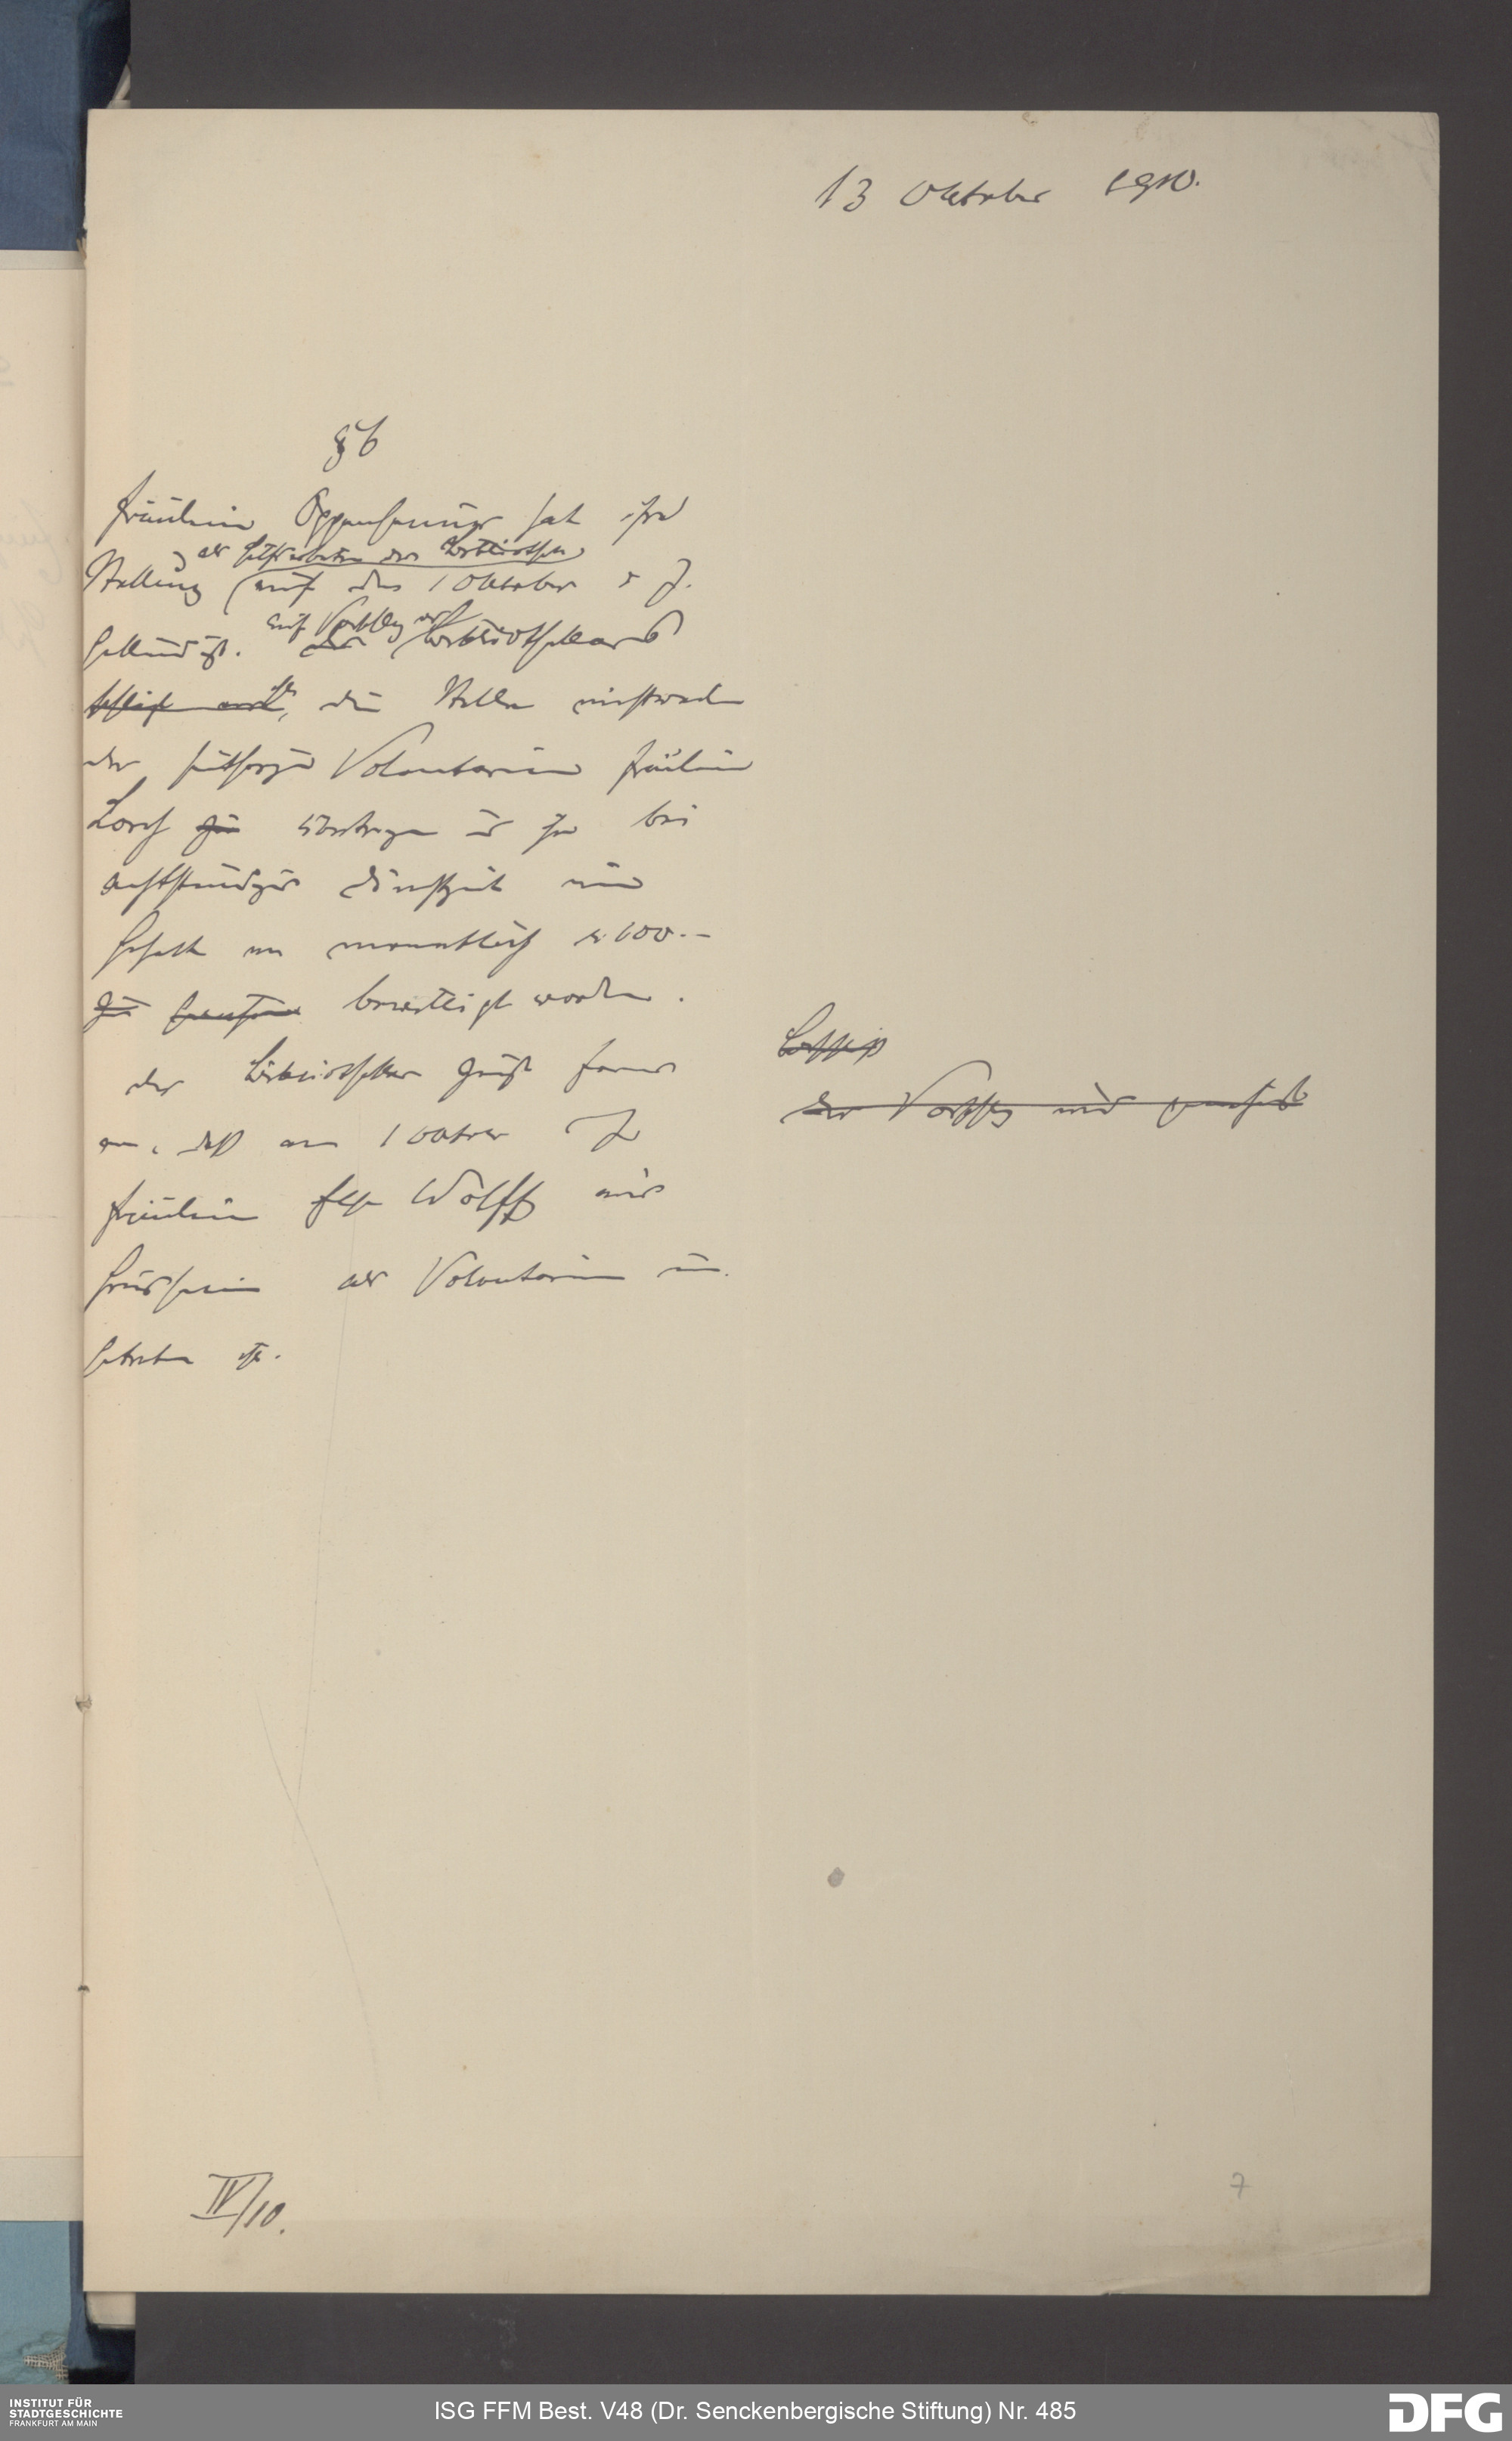 13 Oktober 1910.
§ 6
Fräulein Oppenheimer hat ihre
als Hilfsarbeiterin der Bibliothek
Stellung auf den 1 Oktober d J.
auf Vorschlag des
gekündigt. Der Bibliothekars
schlägt vor, die Stelle
der seitherigen Volontärin Fräulein
Lorch zu übertragen u ihr bei
achtstündiger Dienstzeit ein
Gehalt von monatlich M 100.-
zu gewähren bewilligt worden.
Der Bibliothekar zeigt ferner
an, daß am 1 Oktober d J
Fräulein Else Wolff aus
als Volontärin ein-
getreten ist.
Beschluß
Der Vorschlag wird genehmigt
IV/10.
7
INSTITUT FÜR
STADTGESCHICHTE
FRANKFURT AM MAIN
ISG FFM Best. V48 (Dr. Senckenbergische Stiftung) Nr. 485
DFG